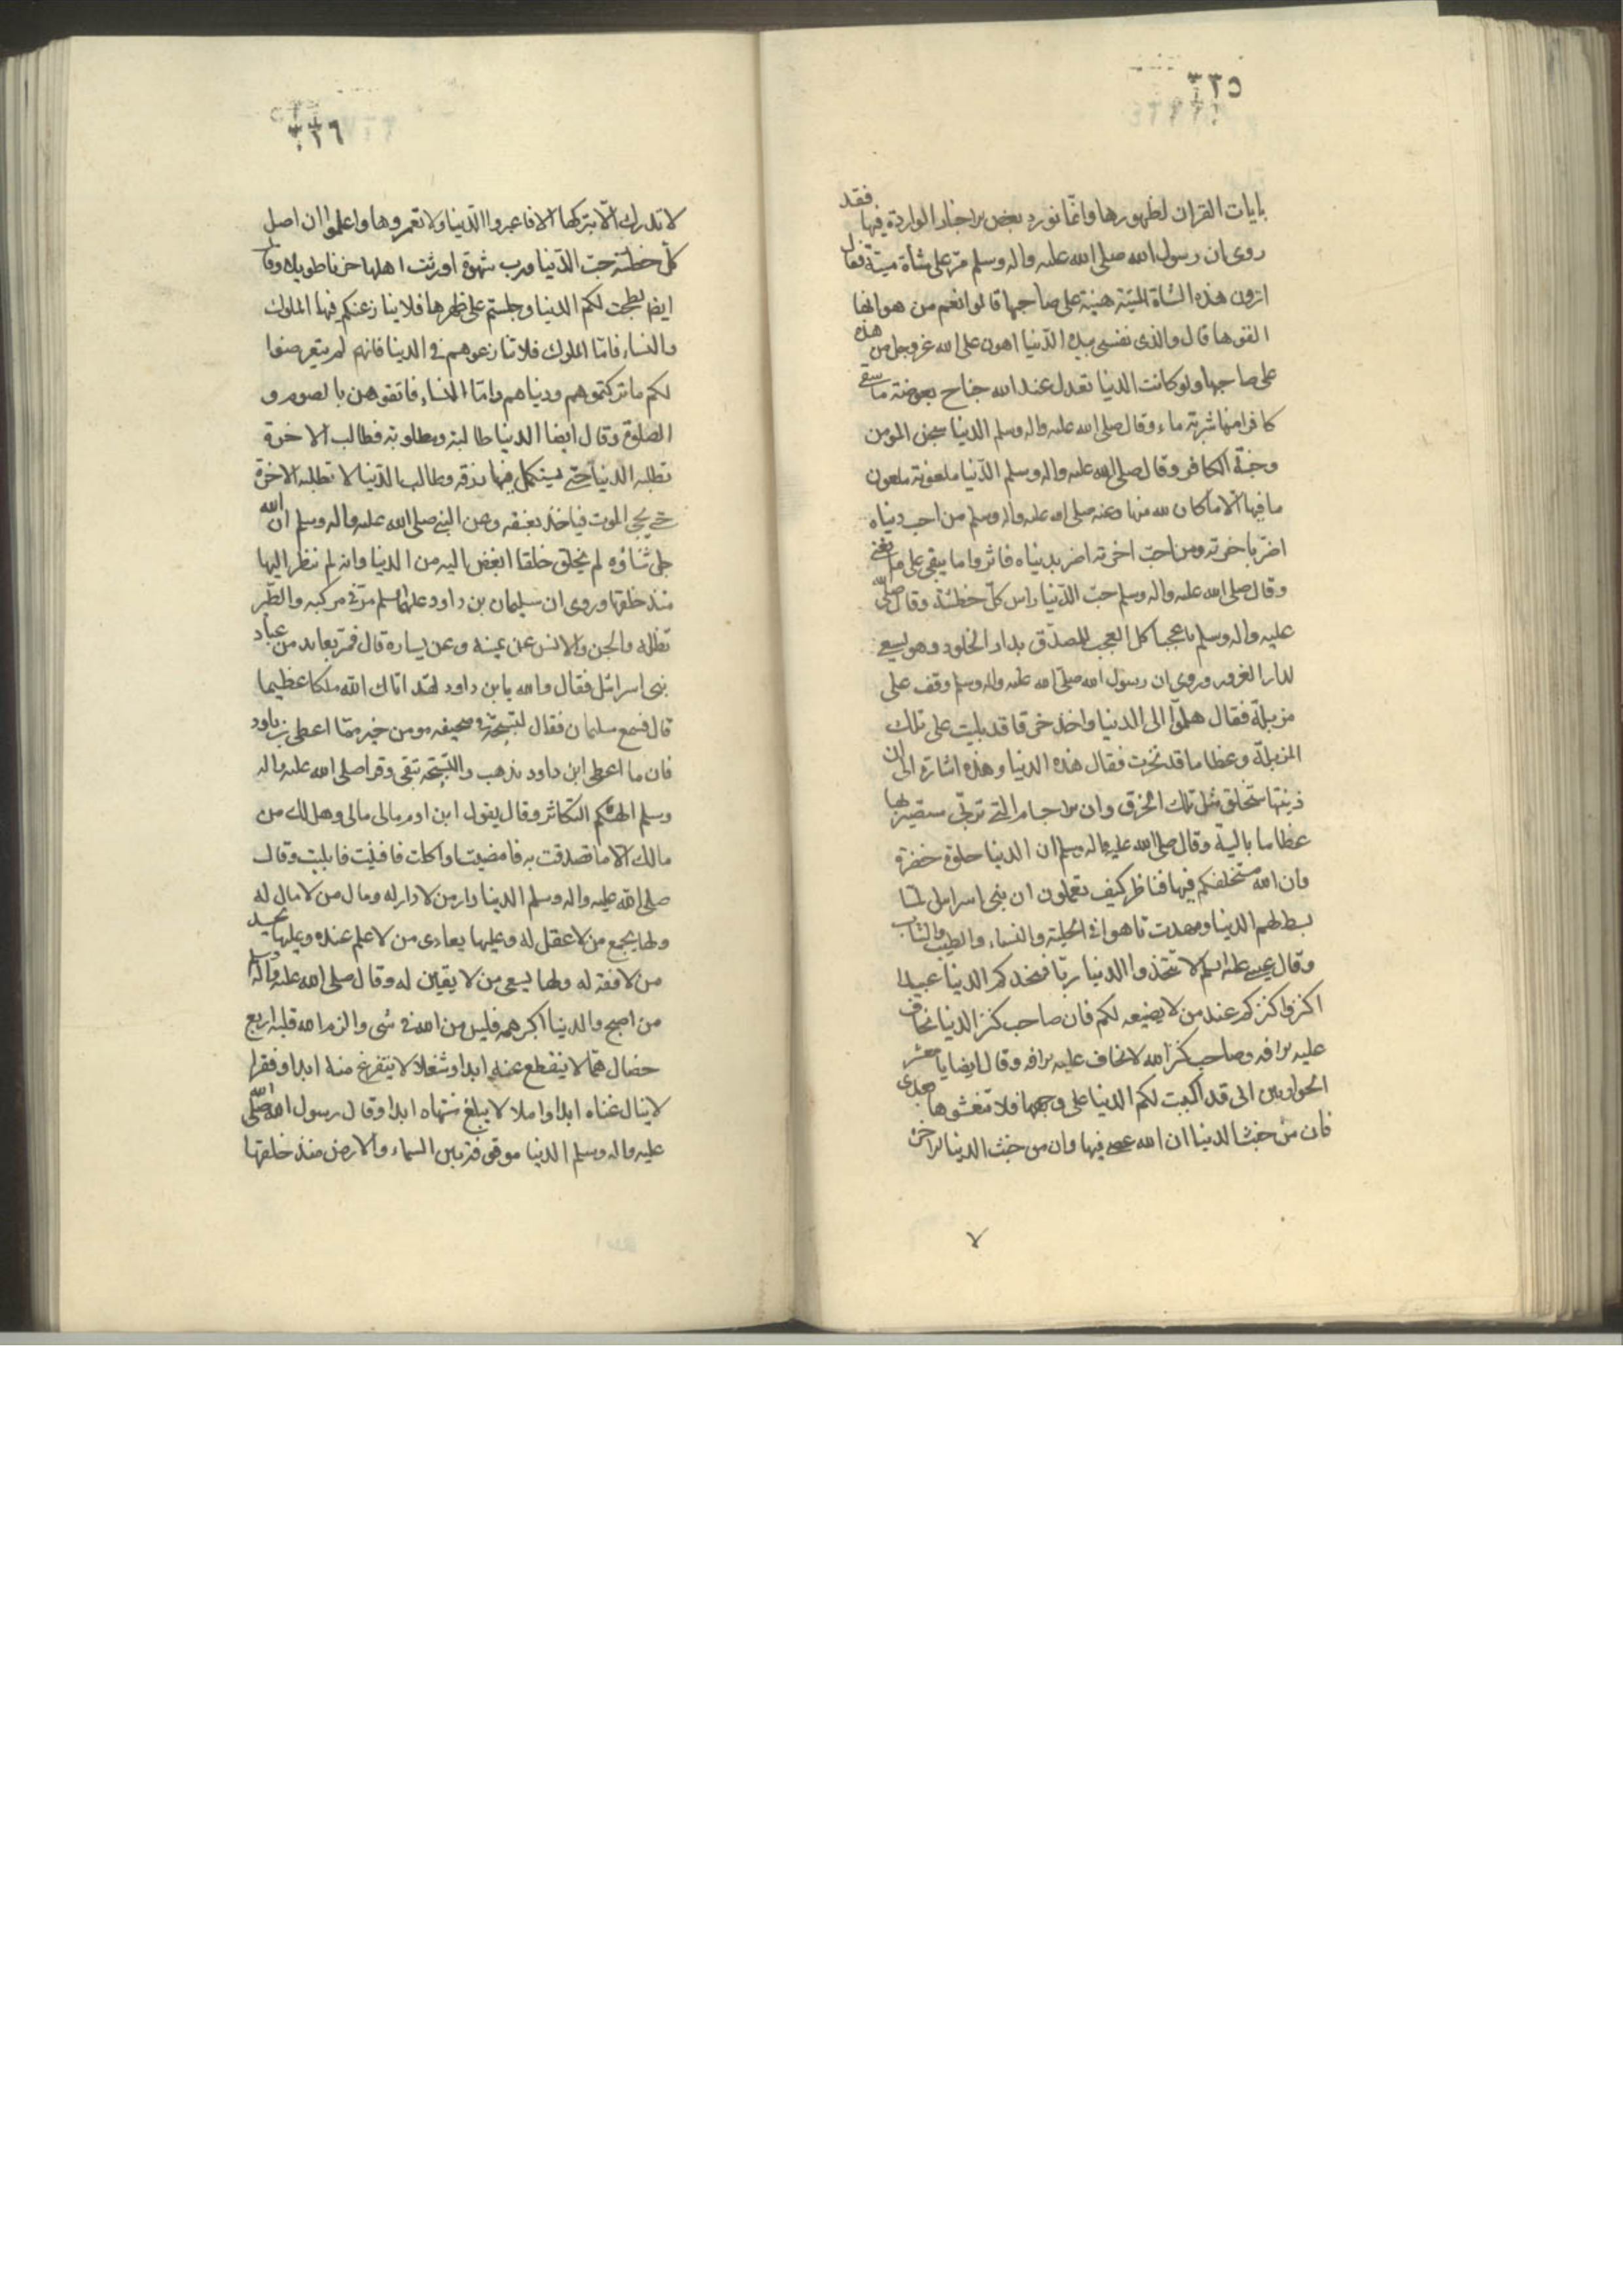 ٣٢٥
بايات القران لظهورها وانما نورد بعض الاخبار الواردة فيها فقد
روى ان رسول الله صلى الله عليه واله وسلم مر على شأة ميتة فقال
اترون هذه الشاة الميتة هينة على صاحبها قالوا نعم من هوانها
القوها قال والذى نفسى بيده الدنيا اهون على الله عز وجل من هذه
على صاحبها ولو كانت الدنيا تعدل عند الله جناح بعوضة ما سقى
كافرا منها شربة ماء وقال صلى الله عليه واله وسلم الدنيا سجن المومن
وجنة الكافر وقال صلى الله عليه واله وسلم الدنيا ملعونة ملعون
ما فيها الا ما كان لله منها وعنه صلى الله عليه واله وسلم من احب دنياه
اضر باخرته ومن احب اخرته اضر بدنياه فاثروا ما يبقى على ما يفنى
وقال صلى الله عليه واله وسلم حب الدنيا راس كل خطئة وقال صلى الله
عليه واله وسلم يا عجبا كل العجب للمصدق بدار الخلود وهو يسعى
لدار الغرور وروى ان رسول الله صلى الله عليه واله وسلم وقف على
مزبلة فقال هلموا الى الدنيا واخذ خرقا قد بليت على تلك
المزبلة وعظاما قد نخرت فقال هذه الدنيا وهذه اشارة الى ان
زينتها ستخلق مثل تلك الخرق وان الاجسام التى تربى ستصير بها
عظاما بالية وقال صلى الله عليه واله وسلم ان الدنيا حلوة خضرة
وان الله مستخلفكم فيها فناظر كيف تعملون ان بنى اسرائل لما
بسطت لهم الدنيا ومهدت تاهوا فى الحلية والنساء والطيب والثياب
وقال عيسى عليه السلم لا تتخذوا الدنيا ربا فتتخذكم الدنيا عبيدا
اكنزوا كنزكم عند من لا يضيعه لكم فان صاحب كنز الدنيا يخاف
عليه الافه وصاحب كنز الله لا يخاف عليه الافه وقال ايضا يا معشر
الحواريين انى قد اكببت لكم الدنيا على وجهها فلا تنعشوها بعدى
فان من خبث الدنيا ان الله عصى فيها وان من خبث الدنيا الاخرة
٣٢٦
لا تدرك الا بتركها الا فاعبروا الدنيا ولا تعمروها واعلموا ان اصل
كل خطئة حب الدنيا ورب شهوة اورثت اهلها حزنا طويلا وقال
ايضا بطحت لكم الدنيا وجلستم على ظهرها فلا ينازعنكم فيها الملوك
والنساء فاما الملوك فلا تنازعوهم فى الدنيا فانهم لم يتعرضوا
لكم ما تركتموهم ودنياهم واما النساء فاتقوهن بالصوم و
الصلوة وقال ايضا الدنيا طالبة ومطلوبة فطالب الاخرة
تطلبه الدنيا حتى يستكمل فيها رزقه وطالب الدنيا لا تطلبه الاخرة
حتى يجئ الموت فياخذ بعنقه وعن النبى صلى الله عليه واله وسلم ان الله
جل ثناؤه لم يخلق خلقا ابغض اليه من الدنيا وانه لم ينظر اليها
منذ خلقها وروى ان سليمان بن داود عليهما السلم مر فى مركبه والطير
تظله والجن والانس عن يمينه وعن يساره قال فمر بعابد من عباد
بنى اسرائل فقال والله يا بن داود لقد اتاك الله ملكا عظيما
قال فسمع سليمان فقال لتسبيحة فى صحيفه مومن خير مما اعطى بن داود
فان ما اعطى ابن داود يذهب والتسبيحة تبقى وقرا صلى الله عليه واله
وسلم الهيكم التكاثر وقال يقول ابن ادم مالى مالى وهل لك من
مالك الا ما تصدقت به فامضيت او اكلت فافنيت فابليت وقال
صلى الله عليه واله وسلم الدنيا دار من لا دار له ومال من لا مال له
ولها يجمع من لا عقل له وعليها يعادى من لا علم عنده وعليها يحسد
من لا فقه له ولها يسعى من لا يقين له وقال صلى الله عليه واله وسلم
من اصبح والدنيا اكبر همه فليس من الله فى شى والزم الله قلبه اربع
خصال هما لا ينقطع عنه ابدا وشغلا لا يتفرغ منه ابدا وفقرا
لا ينال غناه ابدا واملا لا يبلغ منتهاه ابدا وقال رسول الله صلى الله
عليه واله وسلم الدنيا موقوفة بين السماء والارض منذ خلقها